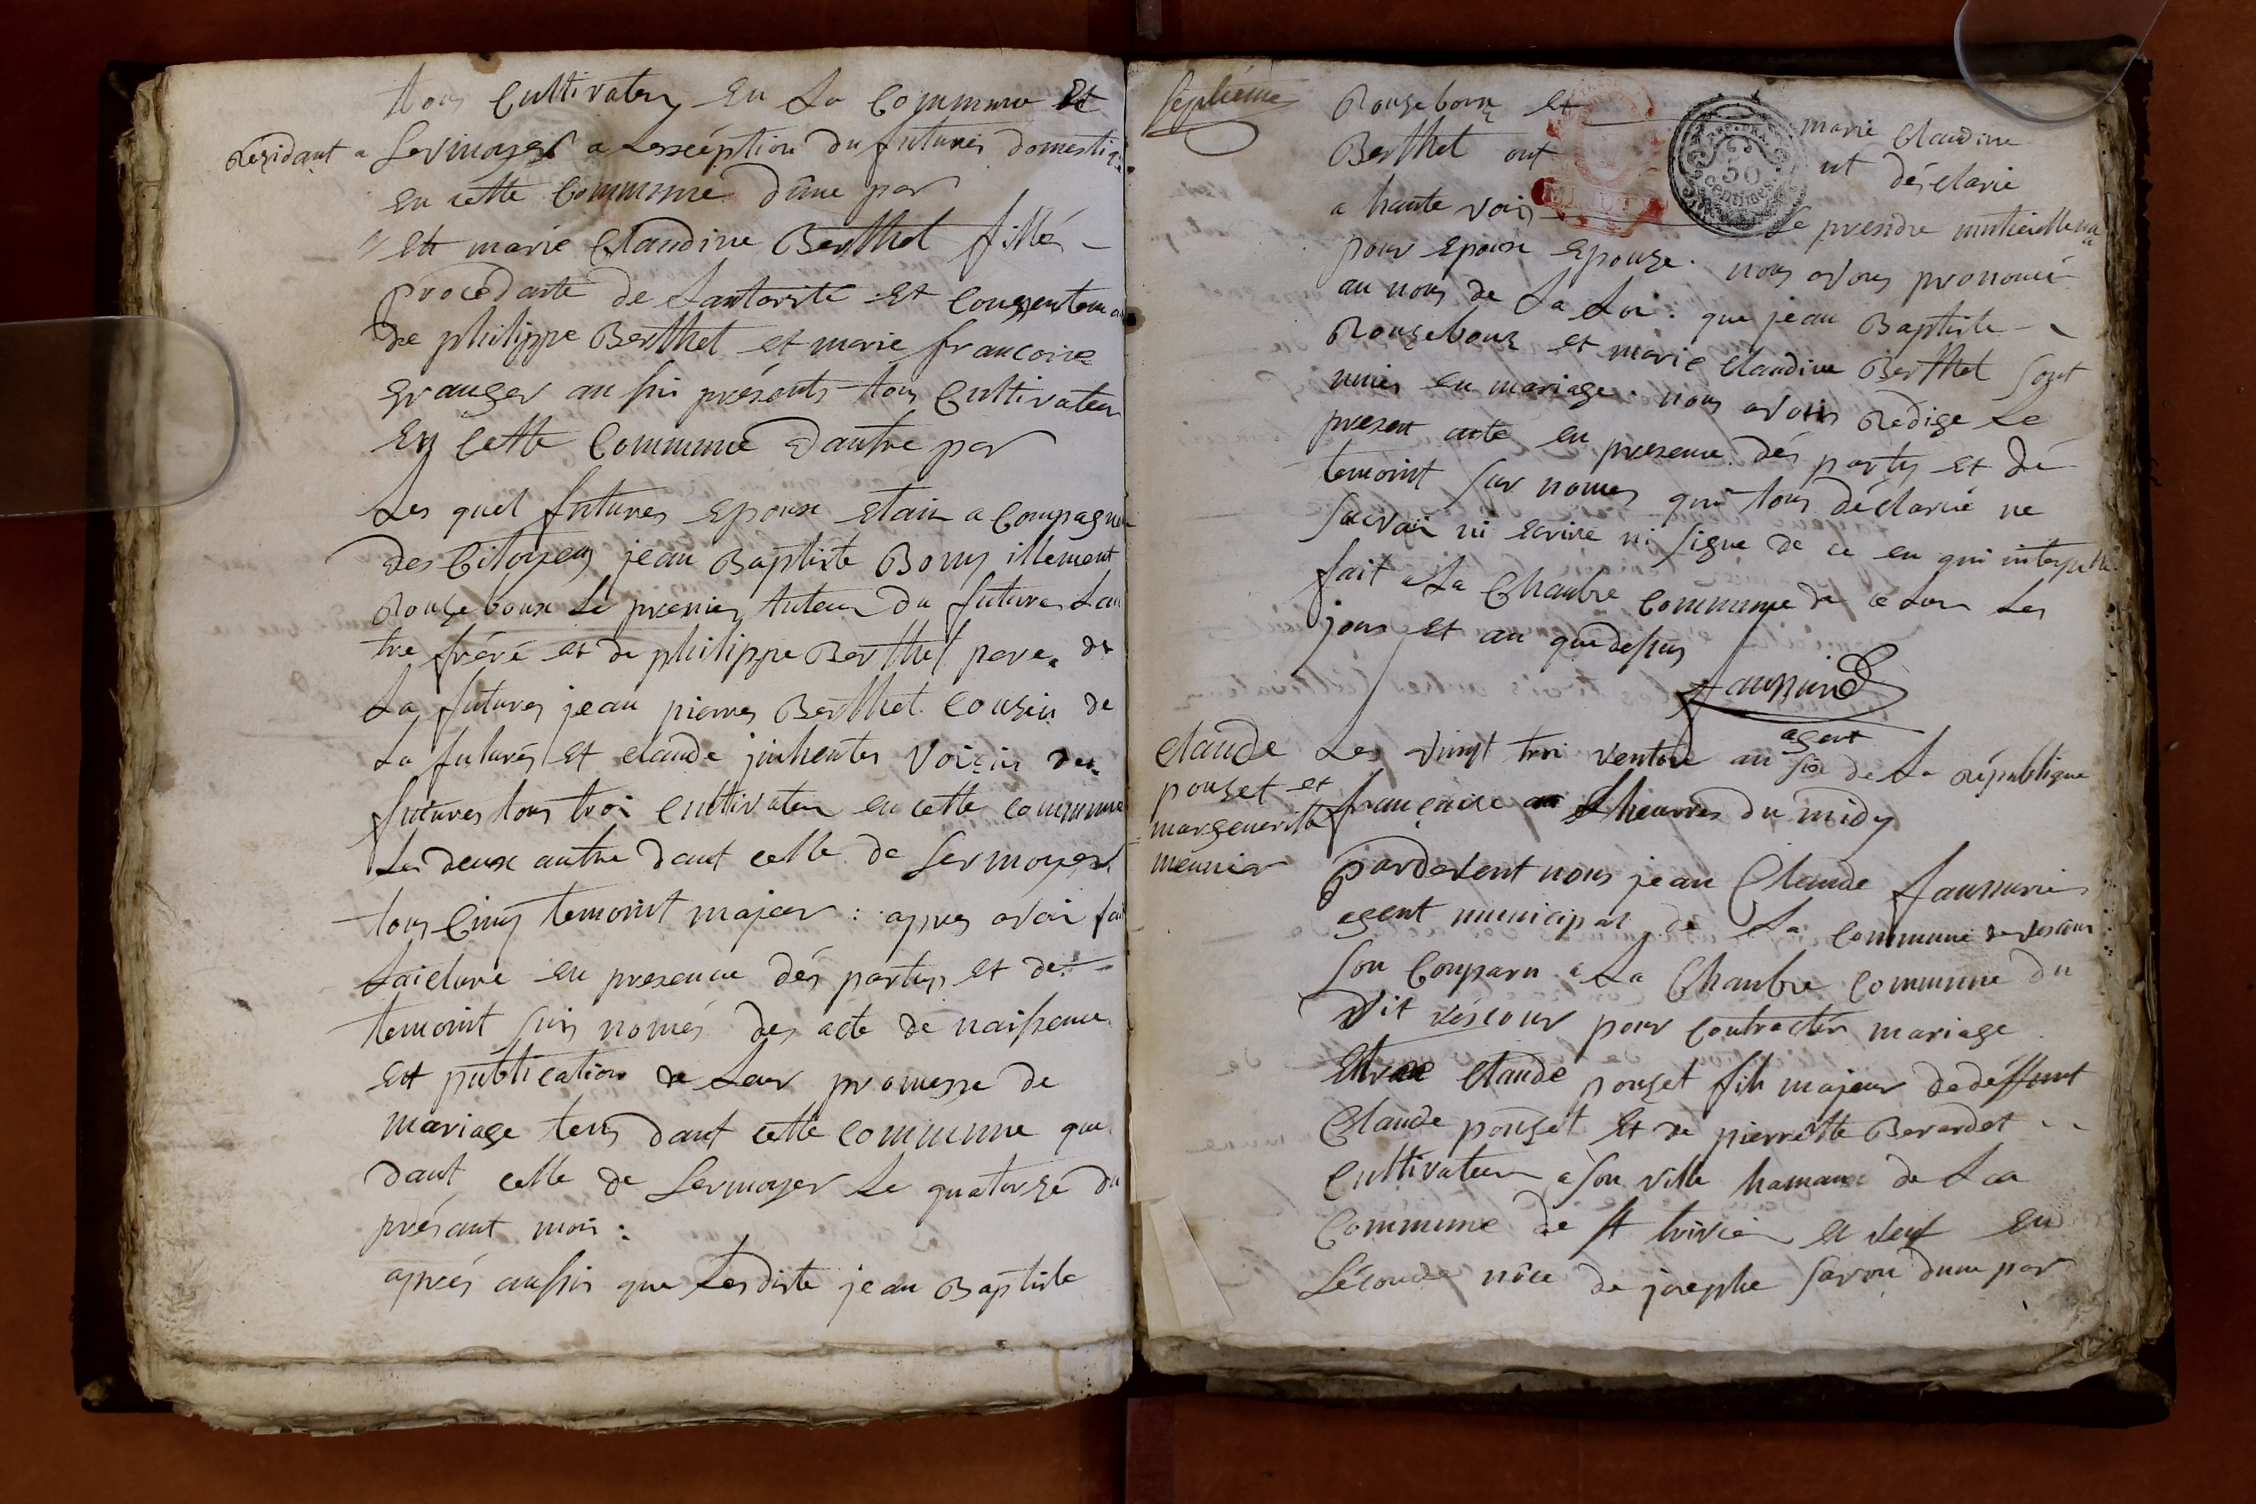 tous Cultivateur En La Commune Et
Residant a Sermoyer a Lesséption du futures domestiq
en cette Commune dûne par
Ett marie Claudine Berthet fillé
Procédante de Lautorité Et Consentem
de philippe Berthet et marie francoise
granger aussi présents tous Cultivateur
En Cette Commune Dautre par
Les quel futures Epoux Etain a Compagn
des Citoyens jean Baptiste Bony
Rougeboux Le premier tuteur du futures Lau
tre fréré et de philippe Berthet pere de
La futures jean pierres Berthet Cousin de
La futurés Et claude voisin des
futures tous troi Cultivateur en cette commune
Les deux autre dant celle de Sermoyer
tous Cinq temoint majeur : apres avoir fai
en presence dés partys et de
temoint suis només des acte de naissance
Ett publication de Leur promesse de
mariage tens dant cette commune que
dant celle de Sermoyer Le quatorze du
présant mois :
aprés aussis que Lesdiste jean Baptiste
Septiéme
Rougeboux Et marie Claudine
Berthet ont ont désclarie
REP. FRA.
50
centimes
a haute voix Se prendre mutuellem
pour epoux Epouze. nous avons prononcé
au nons de La Loi : que jean Baptiste
Rougeboux et marie Claudine Berthet sont
unies en mariage. nous avons Redige Le
present acte en presence dés partys et dé
temoint sur nomes qui tous déclarié ne
savoir ni ecrire ni signe de ce en qui interpelle
fait a La Chambre Commune de Les
jour et an quedessus
agent
claude
pouget et
marguerite
meunier
Les vingt troi ventose an six de La République
française heurres du midy
Pardevent nous jean Claude
agent municipal de La Commune de vescour
son Comparu a La Chambre Commune du
dit véscour pour Contractér mariage
Entre Claude pouget fils majeur dedéffunt
Claude pouget Et de pierrette Berardet
Cultivateur a son ville hamaux de Laa
Commune de St trivier Et veuf en
Séconde nôce de josephe Savon dune par